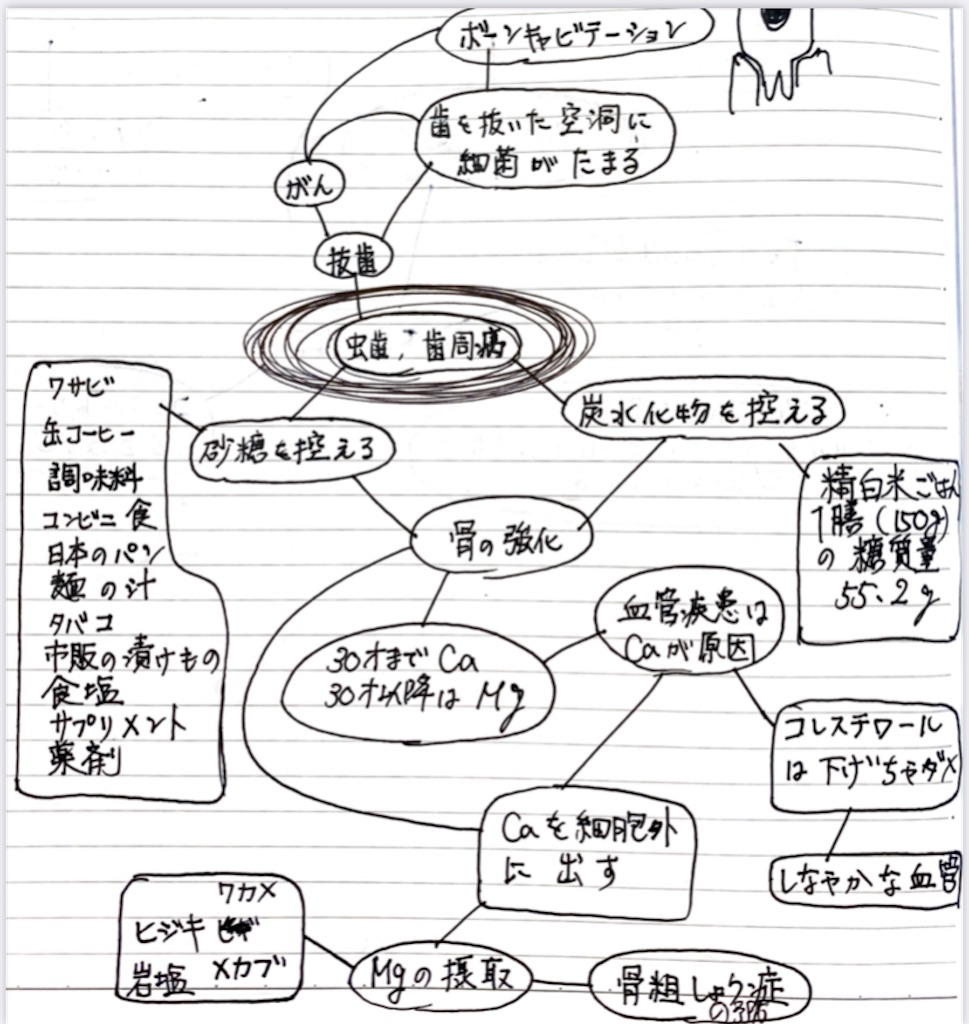 ボーンキャビテーション
歯を抜いた空洞に
細菌がたまる
がん
抜歯
虫歯,歯周病
ワサビ
缶コーヒー
調味料
コンビニ食
日本のパン
麺の汁
タバコ
市販の漬けもの
食塩
サプリメント
薬剤
砂糖を控える
炭水化物を控える
精白米ごはん
1膳(150g)
の糖質量
55.2g
骨の強化
30才までCa
30才以降はMg
血管疾患は
Caが原因
コレステロール
は下げちゃダメ
しなやかな血管
Caを細胞外
に出す
ワカメ
ヒジキ
岩塩 メカブ
Mgの摂取
骨粗しょう症
の予防